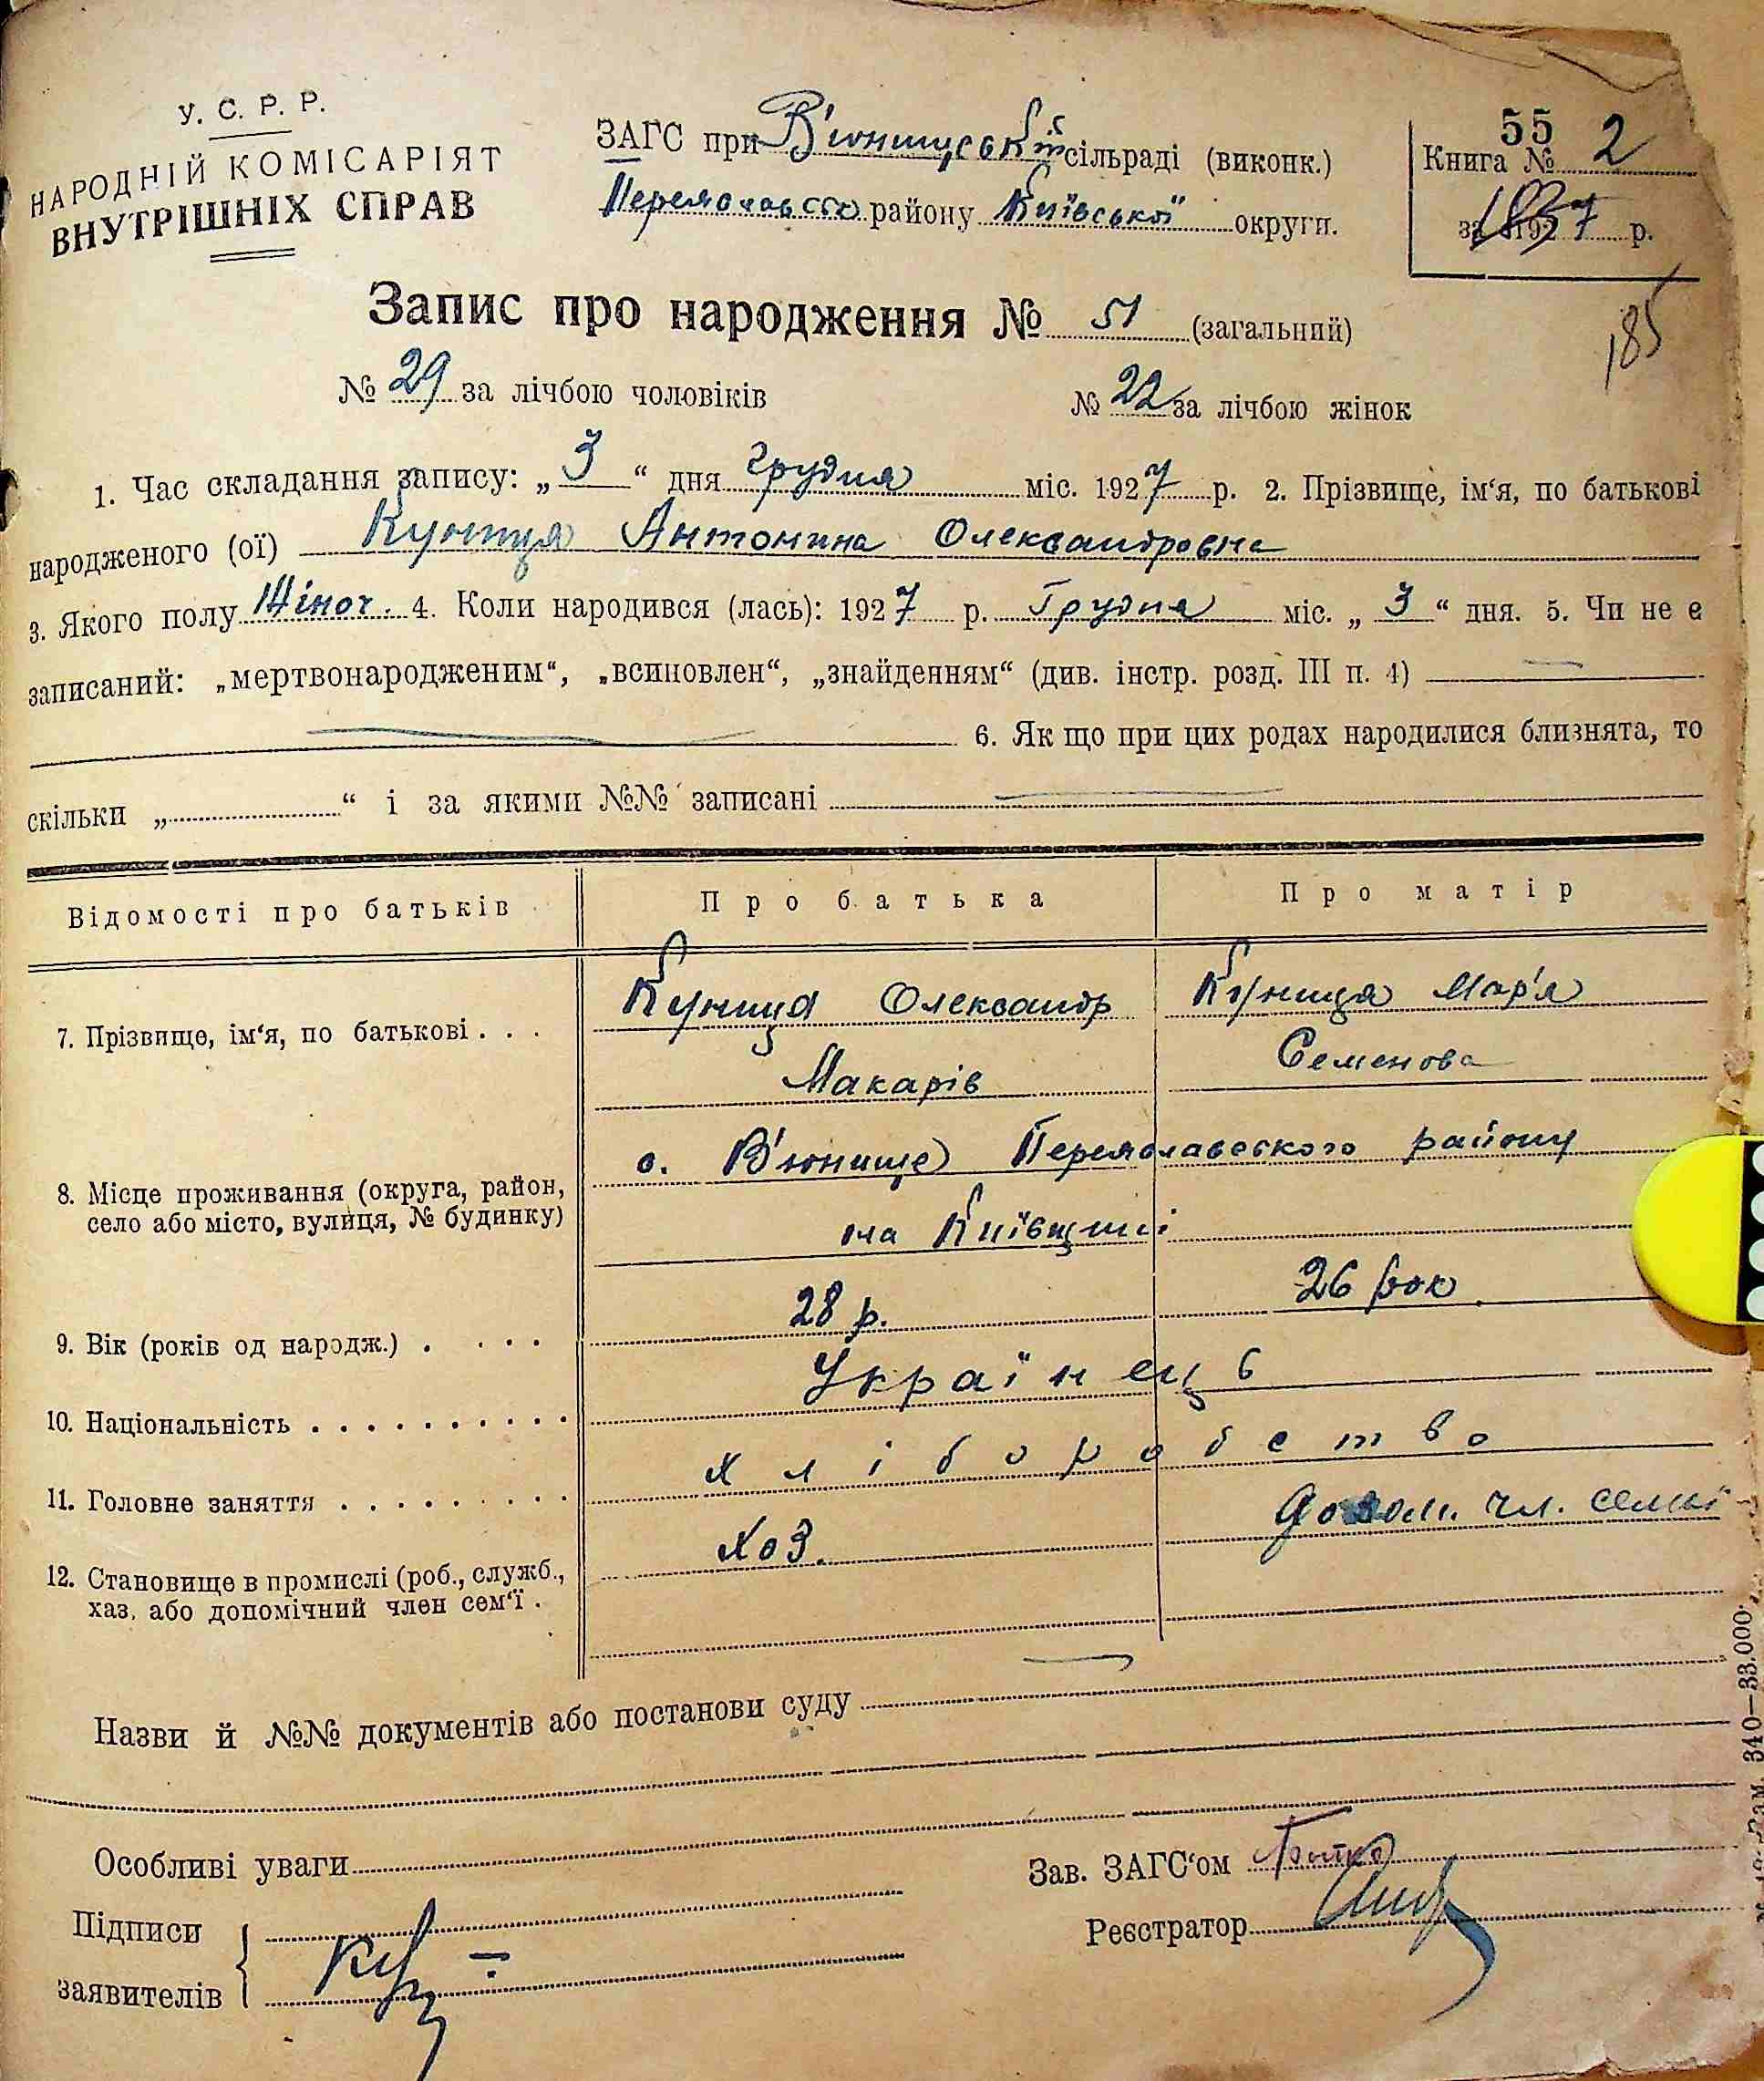 У. С. Р. Р.
НАРОДНІЙ КОМІСАРІЯТ
ВНУТРІШНІХ СПРАВ
ЗАГС при В'юнищській сільраді (виконк.)
Переяславсько району Київської округи.
55
Книга № 2
за 1927 р.
185
Запис про народження № 51 (загальний)
№ 29 за лічбою чоловіків № 22 за лічбою жінок
1. Час складання запису: „3“ дня Грудня міс. 1927 р. 2. Прізвище, ім‘я, по батькові
народженого (ої) Куниця Антонина Олександровна
3. Якого полу Жіноч. 4. Коли народився (лась): 1927 р. Грудня міс. „3“ дня. 5. Чи не є
записаний: „мертвонародженим“, „всиновлен“, „знайденням“ (див. інстр. розд. III п. 4) —
6. Як що при цих родах народилися близнята, то
скільки „ “ і за якими №№ записані —
Відомості про батьків Про батька Про матір
7. Прізвище, ім‘я, по батькові . . . Куниця Олександр Куниця Мар'я
Макарів Семенова
8. Місце проживання (округа, район, с. В'юнище Переяславського району
село або місто, вулиця, № будинку) на Київщині
9. Вік (років од народж.) . . . . 28 р. 26 рок
10. Національність . . . . . . . . . . Українець
11. Головне заняття . . . . . . . . . хліборобство
12. Становище в промислі (роб., служб., Хоз. чл. семьї
хаз. або допомічний член сем‘ї .
Назви й №№ документів або постанови суду —
Особливі уваги
Зав. ЗАГС‘ом
Підписи
заявителів
Реєстратор
340—33.000.